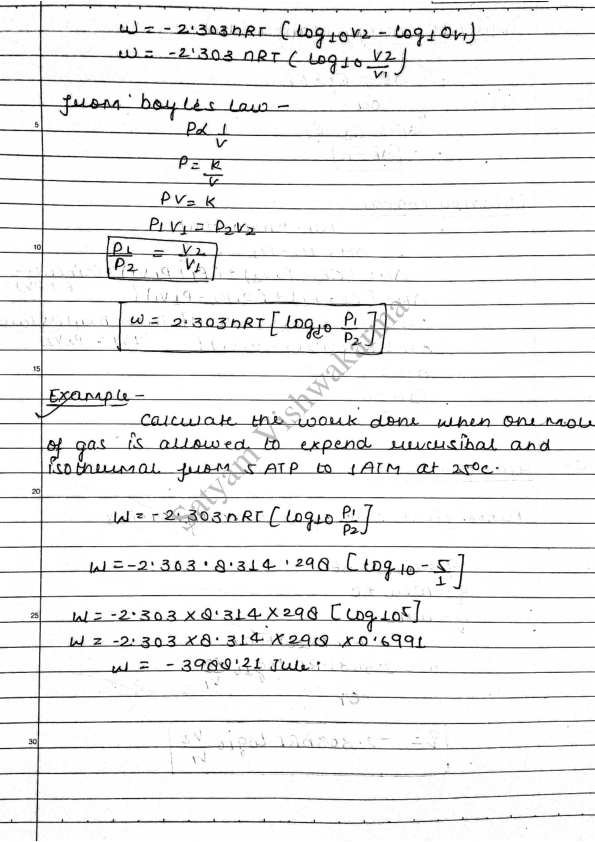 w = -2.303nRT (log10V2 - log10V1)
w = -2.303 nRT (log10 V2/V1)
from boyles law -
5
P∝ 1/V
P = K/V
PV = K
P1V1 = P2V2
10
P1/P2 = V2/V1
w = 2.303nRT [log10 P1/P2]
15
Example -
Calculate the work done when one mole
of gas is allowed to expend reversibal and
isothermal from 5 ATP to 1 ATM at 25°c.
20
w = -2.303nRT [log10 P1/P2]
w = -2.303 . 8.314 . 298 [log10 - 5/1]
25
w = -2.303 x 8.314 x 298 [log105]
w = -2.303 x 8.314 x 298 x 0.6991
w = - 3988.21 Jule.
30
Satyam Vishwakarma